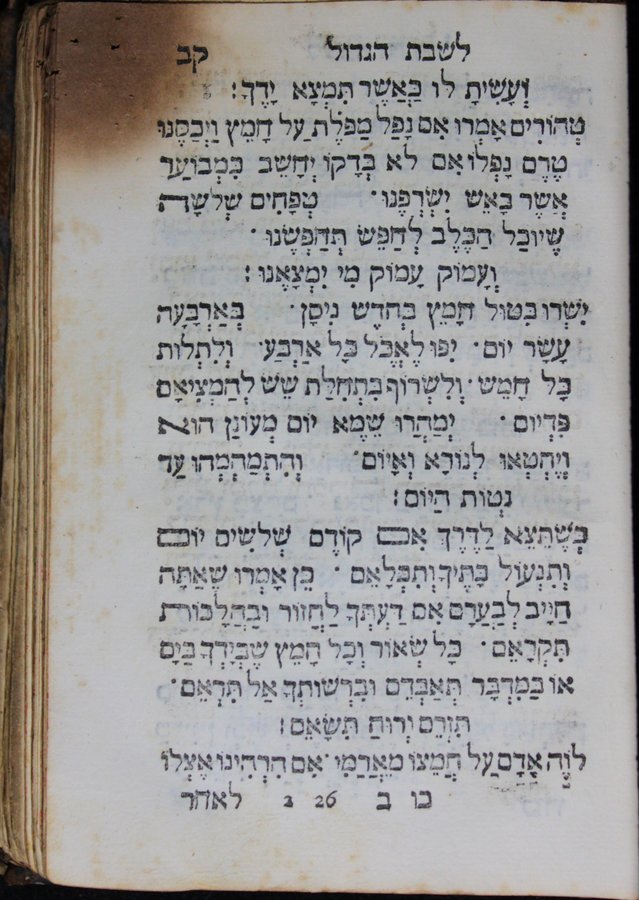 לשבת הגדול קב
וְעָשִׂיתָ לוֹ כַּאֲשֶׁר תִּמְצָא יָדֶךָ :
טְהוֹרִים אָמְרוּ אִם נָפַל מַפֹּלֶת עַל חָמֵץ וַיְכַסֶּנּוּ
טֶרֶם נָפְלוֹ אִם לֹא בְּדָקוֹ יְחָשֵׁב כִּמְבוֹעָר
אֲשֶׁר בָּאֵשׁ יִשְׂרְפֶנּוּ · טְפָחִים שְׁלֹשָׁה
שֶׁיּוּכַל הַכֶּלֶב לְחַפֵּשׂ תְּחַפְּשֶׂנּוּ ·
וְעָמוֹק עָמוֹק מִי יִמְצָאֶנּוּ :
יִשְׁרוּ בִּטּוּל חָמֵץ בְּחֹדֶשׁ נִיסָן · בְּאַרְבָּעָה
עָשָׂר יוֹם · יִפּוּ לֶאֱכֹל כָּל אַרְבַּע · וְלִתְלוֹת
כָּל חָמֵשׁ · וְלִשְׂרוֹף בִּתְחִלַּת שֵׁשׁ לְהַמְצִיאָם
פִּדְיוֹם · יְמַהֲרוּ שֶׁמָּא יוֹם מְעוּנָן הוּא
וְיֶחְטְאוּ לְנוֹרָא וְאָיוֹם · וְהִתְמַהְמְהוּ עַד
נְטוֹת הַיּוֹם :
כְּשֶׁתֵּצֵא לַדֶּרֶךְ אִם קוֹדֶם שְׁלֹשִׁים יוֹם
וְתִנְעוֹל בָּתֶּיךָ וְתִכְלָאֵם · כֵּן אָמְרוּ שֶׁאַתָּה
חַיָּיב לְבַעֲרָם אִם דַּעְתְּךָ לַחֲזוֹר וּבַהֲלָכוֹת
תִּקְרָאֵם · כָּל שְׂאוֹר וְכָל חָמֵץ שֶׁבְּיָדְךָ בַּיָּם
אוֹ בַמִּדְבָּר תְּאַבְּדֵם וּבִרְשׁוּתְךָ אַל תִּרְאֵם ·
תִּזְרֵם וְרוּחַ תִּשָּׂאֵם :
לוֶֹה אָדָם עַל חֲמֵצוֹ מֵאֲרַמִּי · אִם הִרְהִינוֹ אֶצְלוֹ
כו ב 26 2 לאחר